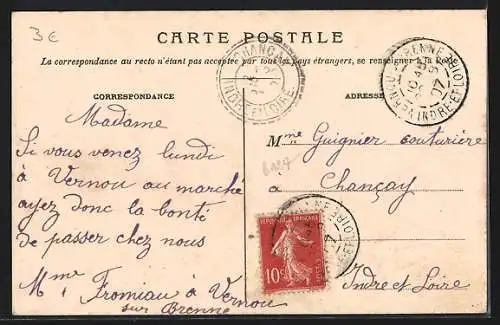 3€
CARTE POSTALE
La correspondance au recto n'étant pas acceptée par tous les pays étrangers, se renseigner à la
CORRESPONDANCE
ADRESSE
CHANÇAY
INDRE-ET-LOIRE
BRENNE
INDRE-ET-LOIRE
07
Madame
Si vous venez lundi
à Vernou au marché
ayez donc la bonté
de passer chez nous
Mme Fromiau à Vernou
sur Brenne
Mme Guignier couturière
à Chançay
Indre et Loire
10c